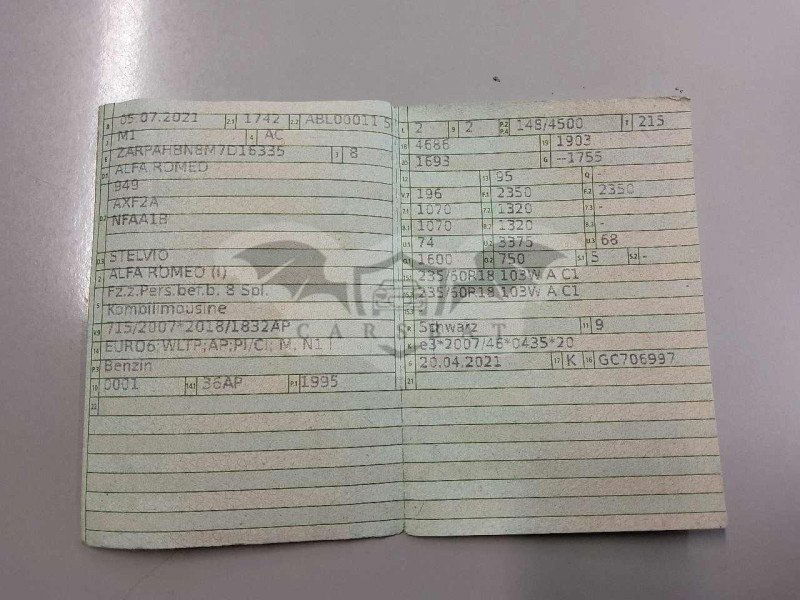 B 05.07.2021 2.1 1742 2.2 ABL00011 5
J M1 4 AC
E ZARPAHBN8M7D16335 3 8
D.1 ALFA ROMEO
949
D.2 AXF2A
NFAA1B
D.3 STELVIO
2 ALFA ROMEO (I)
5 Fz.z.Pers.bef.b. 8 Spl.
Kombilimousine
V.9 715/2007*2018/1832AP
14 EURO6;WLTP;AP;PI/CI; M, N1 I
P.3 Benzin
10 0001 14.1 36AP P.1 1995
22
L 2 9 2 P.2 P.4 148/4500 T 215
18 4686 19 1903
20 1693 G --1755
12 13 95 Q -
V.7 196 F.1 2350 F.2 2350
7.1 1070 7.2 1320 7.3 -
8.1 1070 8.2 1320 8.3 -
U.1 74 U.2 3375 U.3 68
O.1 1600 O.2 750 S.1 5 S.2 -
15.1 235/60R18 103W A C1
15.2 235/60R18 103W A C1
15.3 -
R Schwarz 11 9
K e3*2007/46*0435*20
6 20.04.2021 17 K 16 GC706997
21